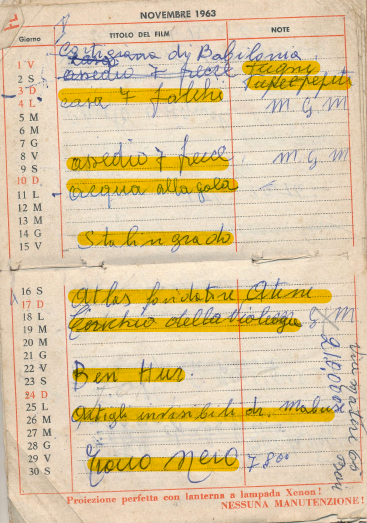 NOVEMBRE 1963
Giorno TITOLO DEL FILM NOTE
Cortigiana di Babilonia
1 V
2 S assedio 7 frecce
3 D
4 L casa 7 falchi M G M
5 M
6 M
7 G
8 V assedio 7 frecce M G M
9 S
10 D acqua alla gola
11 L
12 M
13 M
14 G Stalingrado
15 V
16 S Atlas fondatore Atene
17 D
18 L Cerchio della violenza G M
19 M
20 M
21 G
22 V Ben Hur.
23 S
24 D
25 L Artigli invisibili dr. Mabuse
26 M
27 M
28 G
29 V Gallo nero 7800
30 S
Proiezione perfetta con lanterna a lampada Xenon!
NESSUNA MANUTENZIONE!